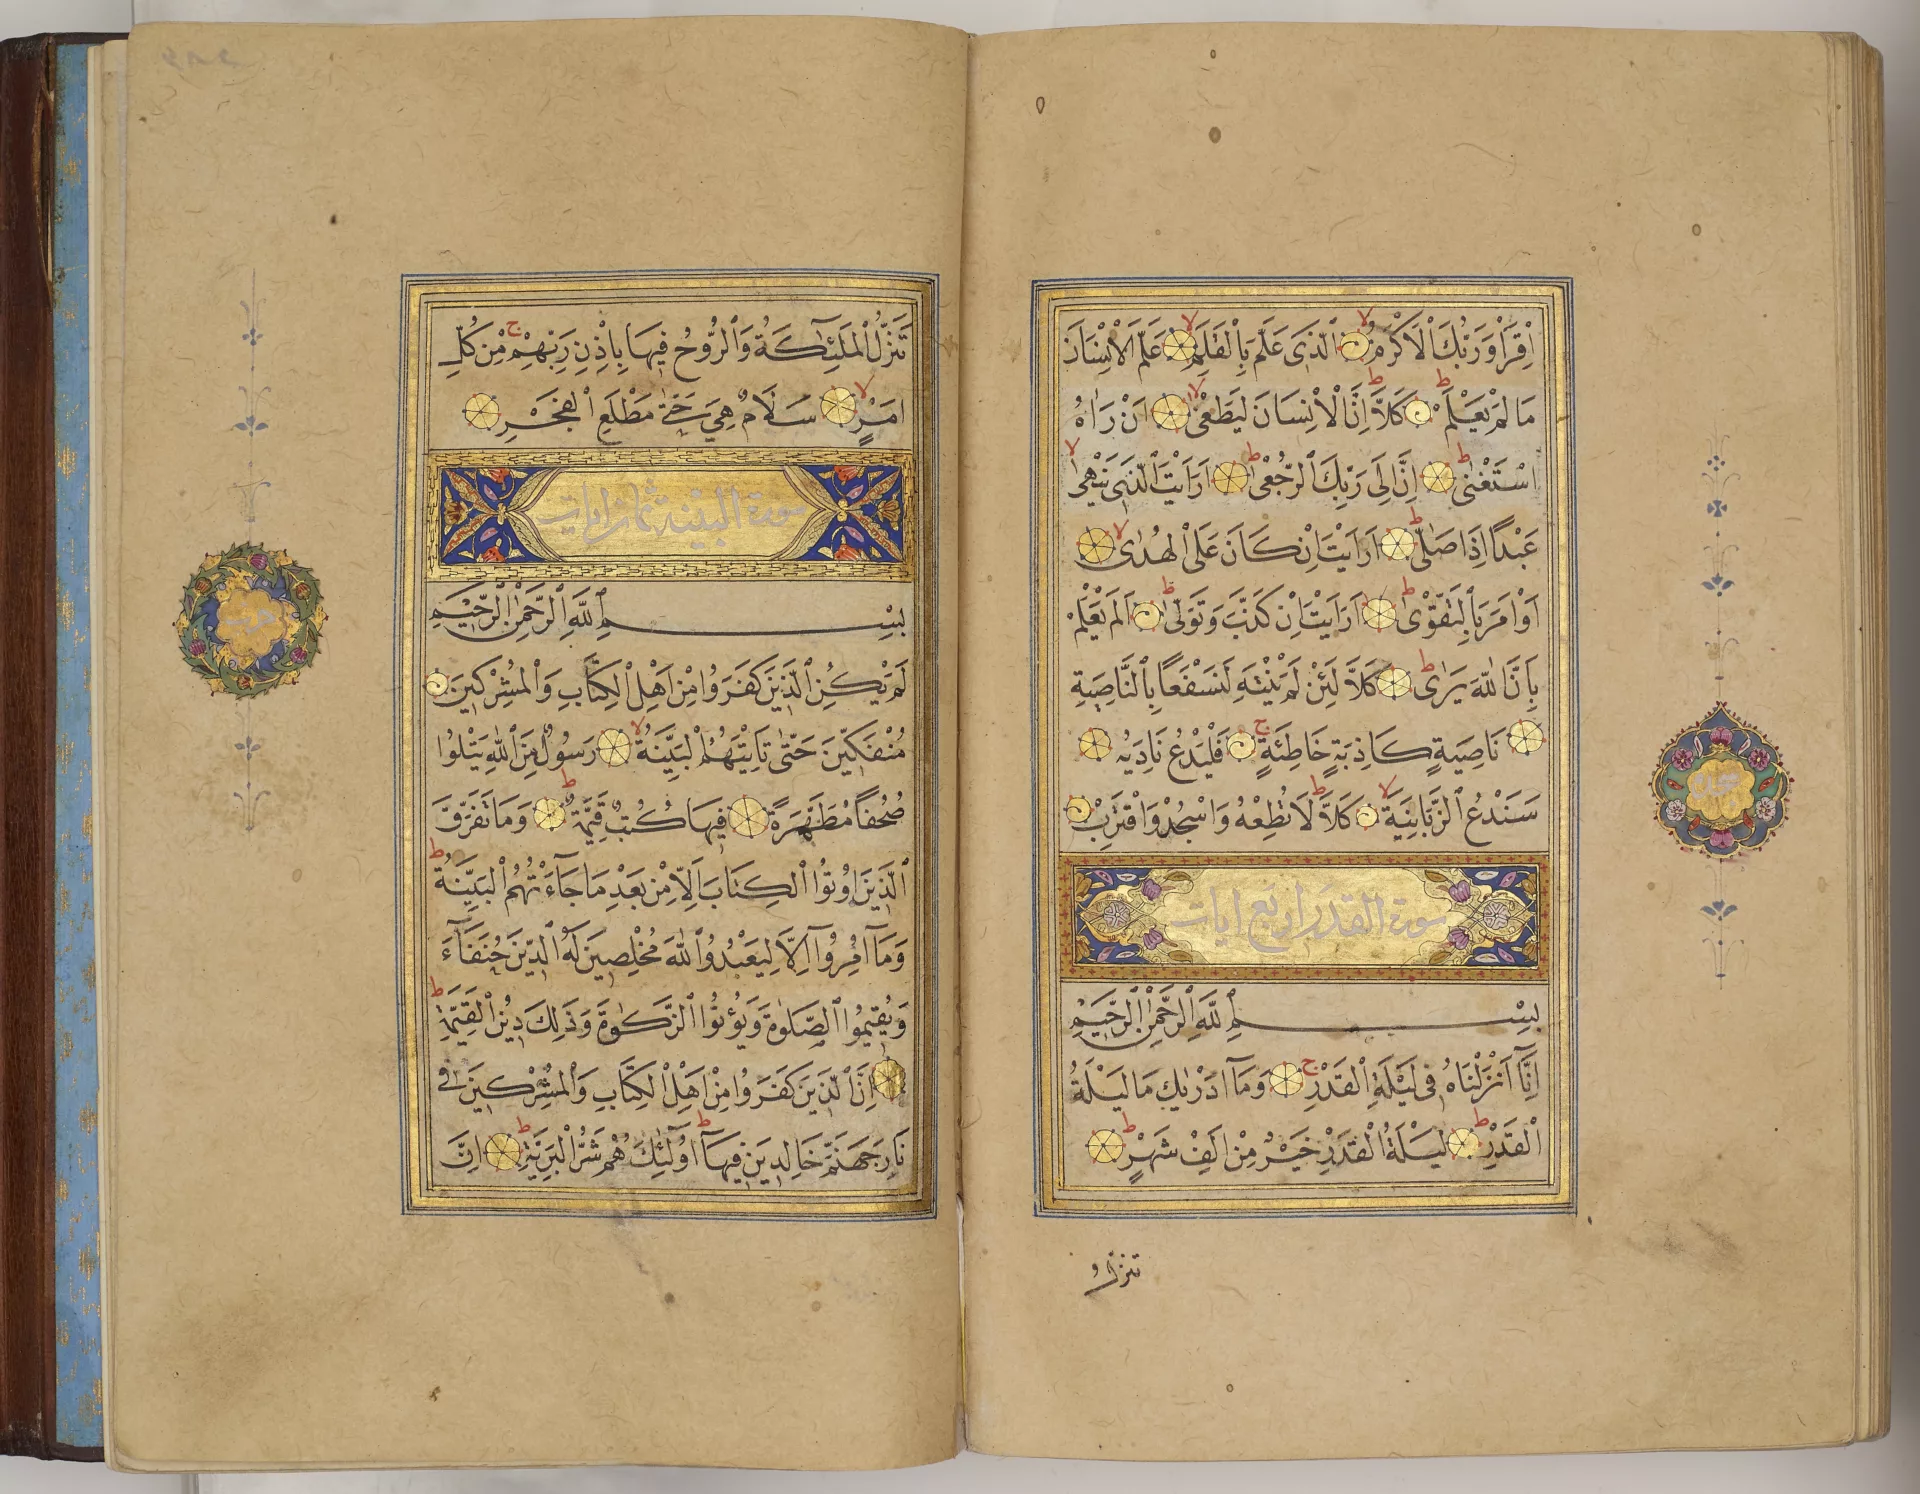 اِقْرَأْ وَرَبُّكَ الْاَكْرَمُ الَّذٖى عَلَّمَ بِالْقَلَمِ عَلَّمَ الْاِنْسَانَ
مَا لَمْ يَعْلَمْ كَلَّا اِنَّ الْاِنْسَانَ لَيَطْغٰى اَنْ رَاٰهُ
اسْتَغْنٰى اِنَّ اِلٰى رَبِّكَ الرُّجْعٰى اَرَاَيْتَ الَّذٖى يَنْهٰى
عَبْدًا اِذَا صَلّٰى اَرَاَيْتَ اِنْ كَانَ عَلَى الْهُدٰى
اَوْ اَمَرَ بِالتَّقْوٰى اَرَاَيْتَ اِنْ كَذَّبَ وَتَوَلّٰى اَلَمْ يَعْلَمْ
بِاَنَّ اللّٰهَ يَرٰى كَلَّا لَئِنْ لَمْ يَنْتَهِ لَنَسْفَعًا بِالنَّاصِيَةِ
نَاصِيَةٍ كَاذِبَةٍ خَاطِئَةٍ فَلْيَدْعُ نَادِيَهُ
سَنَدْعُ الزَّبَانِيَةَ كَلَّا لَا تُطِعْهُ وَاسْجُدْ وَاقْتَرِبْ
سورة القدر اربع ايات
بِسْمِ اللّٰهِ الرَّحْمٰنِ الرَّحٖيمِ
اِنَّٓا اَنْزَلْنَاهُ فٖى لَيْلَةِ الْقَدْرِ وَمَٓا اَدْرٰيكَ مَا لَيْلَةُ
الْقَدْرِ لَيْلَةُ الْقَدْرِ خَيْرٌ مِنْ اَلْفِ شَهْرٍ
تنزل
تَنَزَّلُ الْمَلٰٓئِكَةُ وَالرُّوحُ فٖيهَا بِاِذْنِ رَبِّهِمْ مِنْ كُلِّ
اَمْرٍ سَلَامٌ هِىَ حَتّٰى مَطْلَعِ الْفَجْرِ
سورة البينة ثمان ايات
بِسْمِ اللّٰهِ الرَّحْمٰنِ الرَّحٖيمِ
لَمْ يَكُنِ الَّذٖينَ كَفَرُوا مِنْ اَهْلِ الْكِتَابِ وَالْمُشْرِكٖينَ
مُنْفَكّٖينَ حَتّٰى تَاْتِيَهُمُ الْبَيِّنَةُ رَسُولٌ مِنَ اللّٰهِ يَتْلُوا
صُحُفًا مُطَهَّرَةً فٖيهَا كُتُبٌ قَيِّمَةٌ وَمَا تَفَرَّقَ
الَّذٖينَ اُوتُوا الْكِتَابَ اِلَّا مِنْ بَعْدِ مَا جَٓاءَتْهُمُ الْبَيِّنَةُ
وَمَٓا اُمِرُٓوا اِلَّا لِيَعْبُدُوا اللّٰهَ مُخْلِصٖينَ لَهُ الدّٖينَ حُنَفَٓاءَ
وَيُقٖيمُوا الصَّلٰوةَ وَيُؤْتُوا الزَّكٰوةَ وَذٰلِكَ دٖينُ الْقَيِّمَةِ
اِنَّ الَّذٖينَ كَفَرُوا مِنْ اَهْلِ الْكِتَابِ وَالْمُشْرِكٖينَ فٖى
نَارِ جَهَنَّمَ خَالِدٖينَ فٖيهَٓا اُولٰٓئِكَ هُمْ شَرُّ الْبَرِيَّةِ اِنَّ
حزب